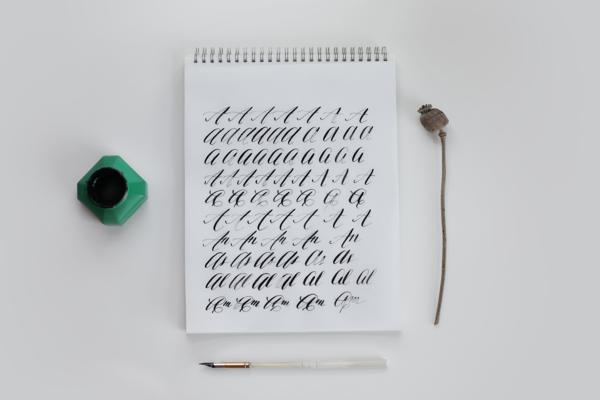 A A A A A A A
A A A A A A A A A A A
A A A A A A A A A A
A A A A A A A A
A A A A A A A
A A A A A A A
An An An An An
As As As As As As
Al Al Al Al Al Al Al
Am Am Am Am Am